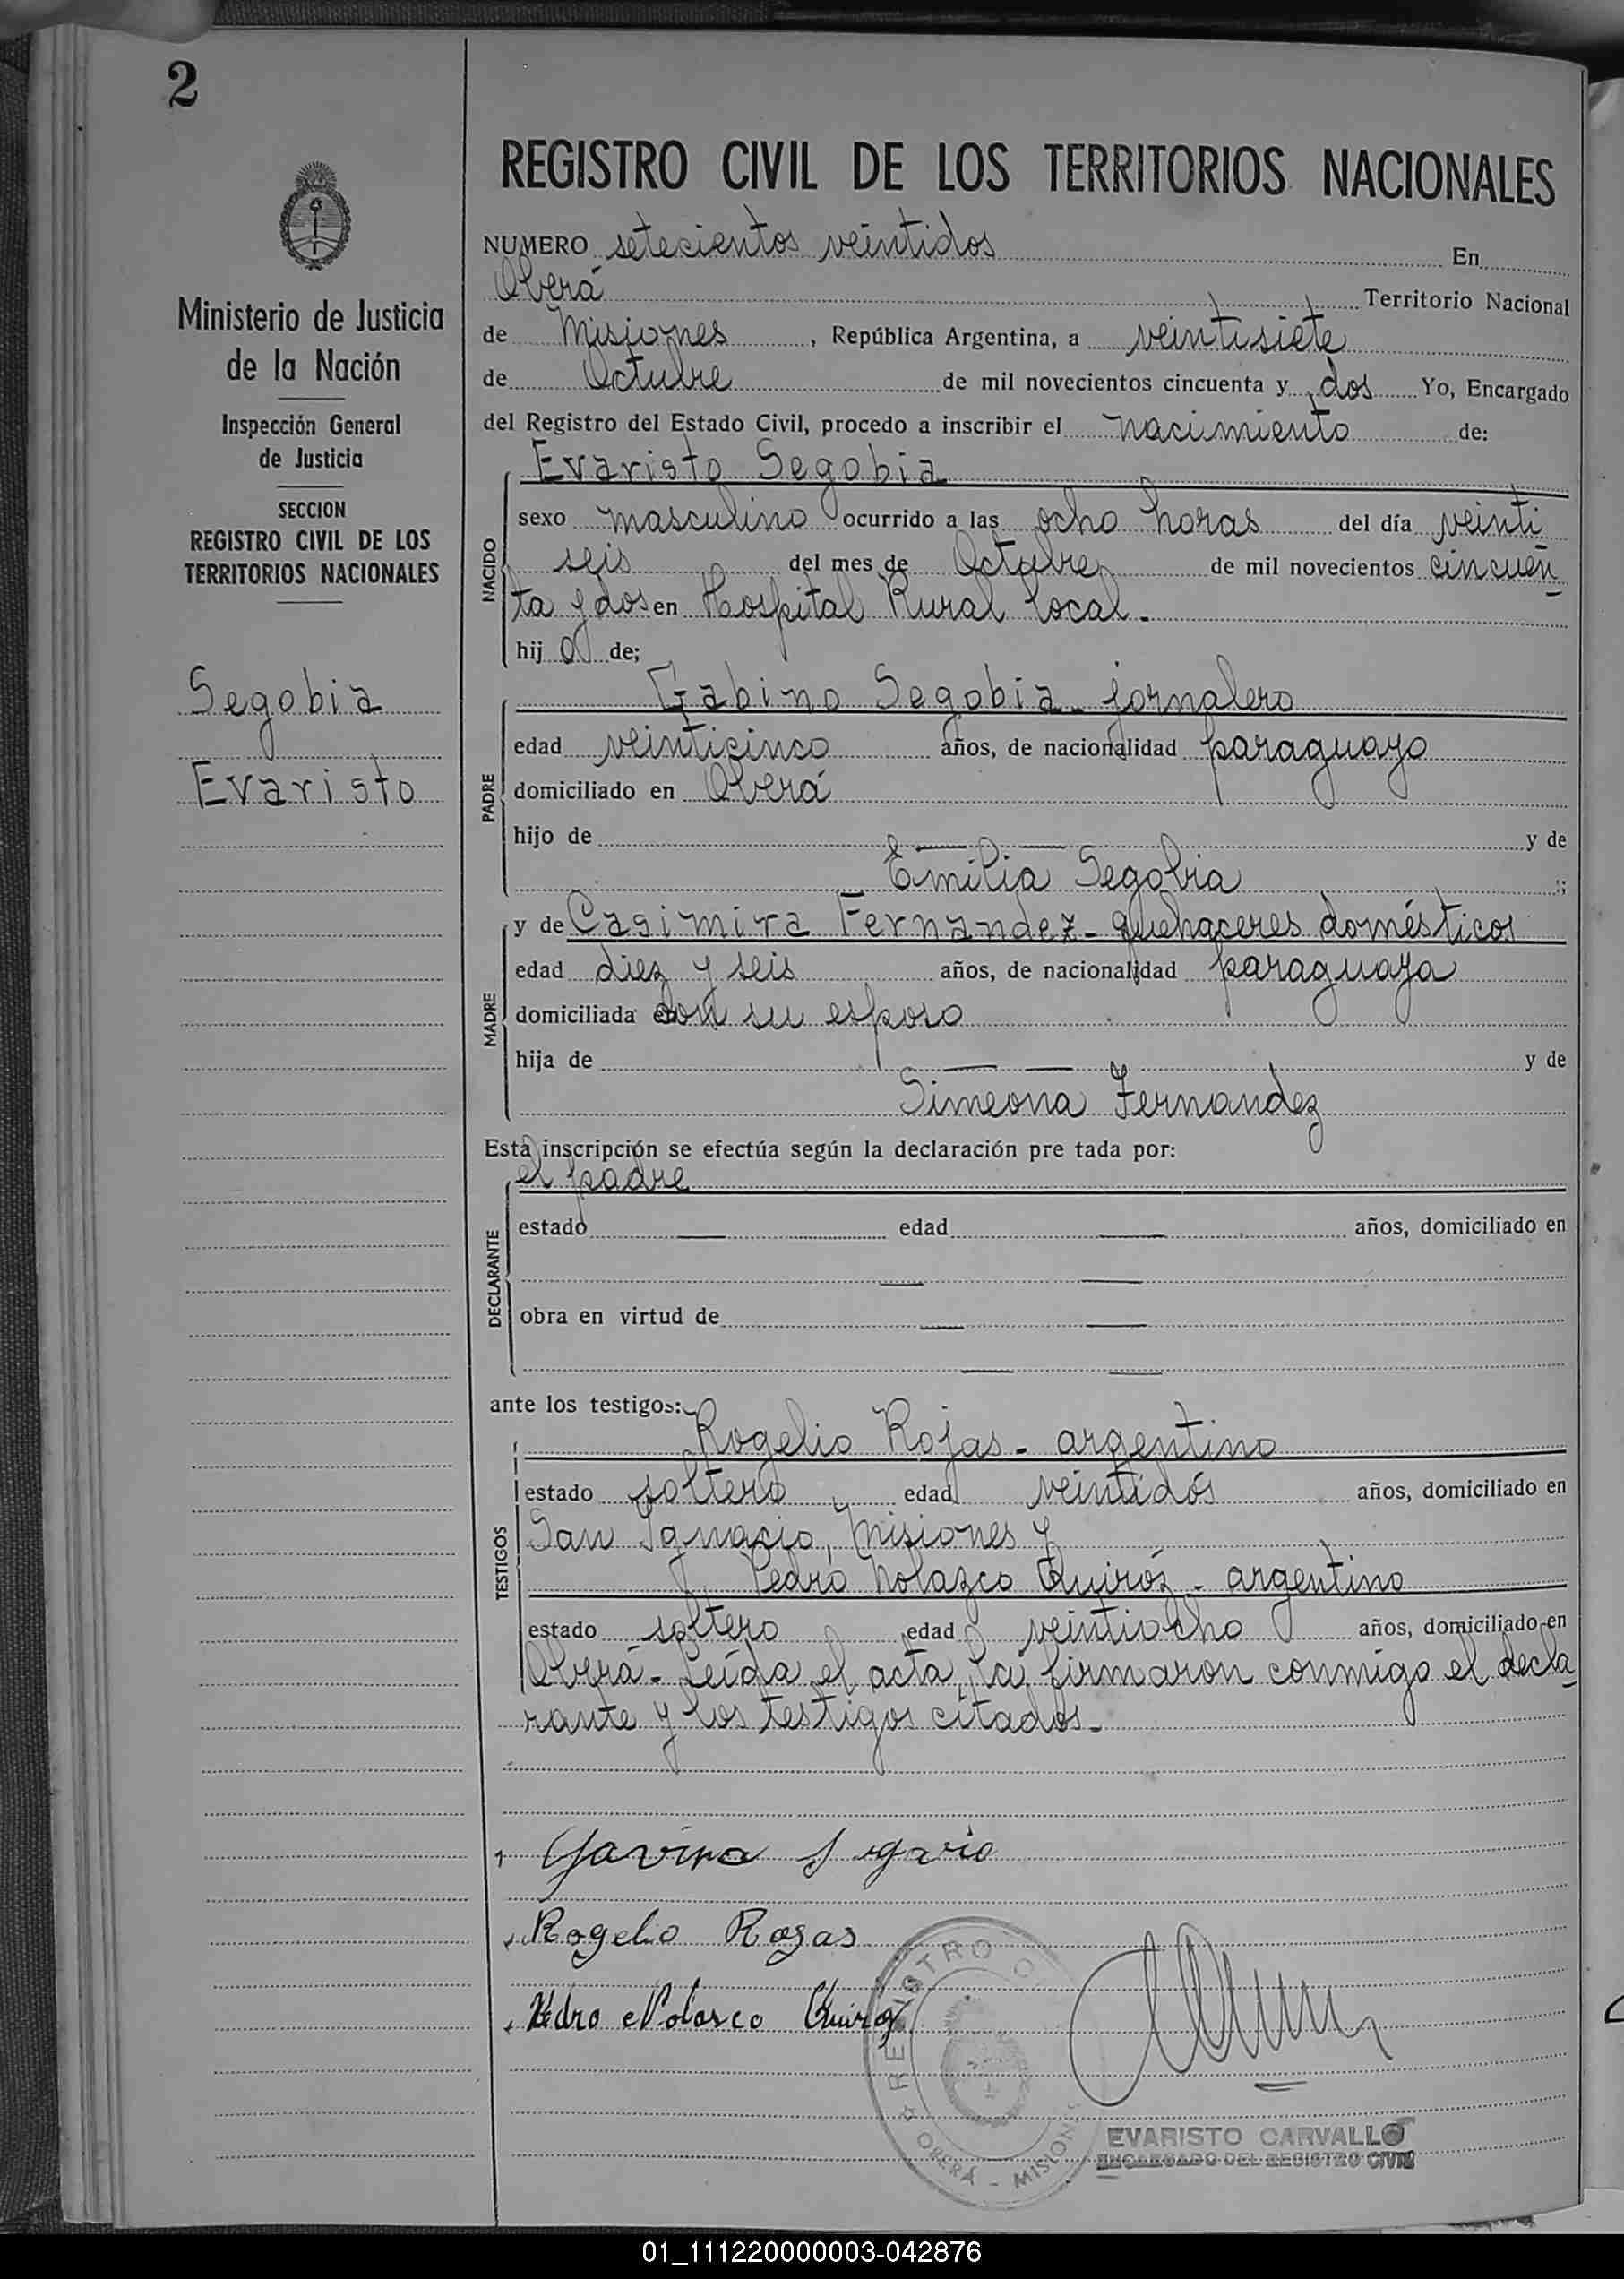 2
REGISTRO CIVIL DE LOS TERRITORIOS NACIONALES
Ministerio de Justicia
de la Nación
Inspección General
de Justicia
SECCION
REGISTRO CIVIL DE LOS
TERRITORIOS NACIONALES
Segobia
Evaristo
NUMERO setecientos veintidos En
Oberá Territorio Nacional
de Misiones, República Argentina, a veintisiete
de Octubre de mil novecientos cincuenta y dos Yo, Encargado
del Registro del Estado Civil, procedo a inscribir el nacimiento de:
Evaristo Segobia
NACIDO
sexo masculino ocurrido a las ocho horas del día veinti
seis del mes de Octubre de mil novecientos cincuen
ta y dos en Hospital Rural local.
hij o de;
Gabino Segobia - jornalero
PADRE
edad veinticinco años, de nacionalidad paraguayo
domiciliado en Oberá
hijo de y de
Emilia Segobia ;
y de Casimira Fernandez - quehaceres domésticos
MADRE
edad diez y seis años, de nacionalidad paraguaya
domiciliada con su esposo
hija de y de
Simeona Fernandez
Esta inscripción se efectúa según la declaración pre tada por:
el padre
DECLARANTE
estado edad años, domiciliado en
obra en virtud de
ante los testigos:
Rogelio Rojas - argentino
TESTIGOS
estado soltero edad veintidós años, domiciliado en
San Ignacio, Misiones y
Pedro Nolazco Quiróz - argentino
estado soltero edad veintiocho años, domiciliado en
Oberá - Leída el acta, la firmaron conmigo el decla
rante y los testigos citados.-
Gavino
Rogelio Rogas
Pedro Nolasco Quiroz
REGISTRO
OBERÁ - MISIONES
EVARISTO CARVALLO
ENCARGADO DEL REGISTRO CIVIL
01_111220000003-042876